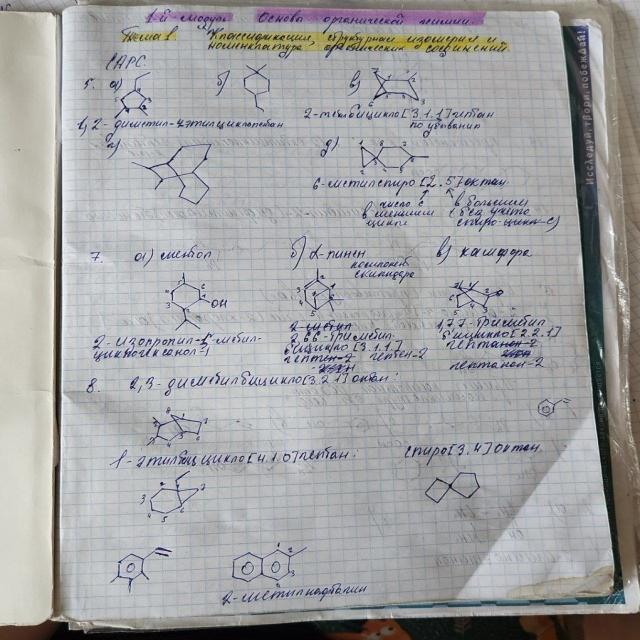 1-й модуль Основы органической химии.
Тема 1. Классификация, структурная изомерия и
номенклатура органических соединений.
САРС.
5. а) б) в)
1,2-диметил-4этилциклопентан
2-метилбицикло[3.1.1]гептан
по убыванию
г) д)
6-метилспиро[2.5]октан
число С
в меньшем
цикле
в большем
(без учёта
спиро-цикл-С)
7. а) ментол б) α-пинен в) камфора
компонент
скипидара
OH
2-изопропил-5-метил-
циклогексанол-1
2,6,6-триметил-
бицикло[3.1.1]
гептен-2
1,7,7-триметил
бицикло[2.2.1]
гептанон-2
8. 2,3-диметилбицикло[3.2.1]октан:
1-этилбицикло[4.1.0]гептан:
спиро[3.4]октан.
2-метилнафталин
Исследуй, твори, побеждай!